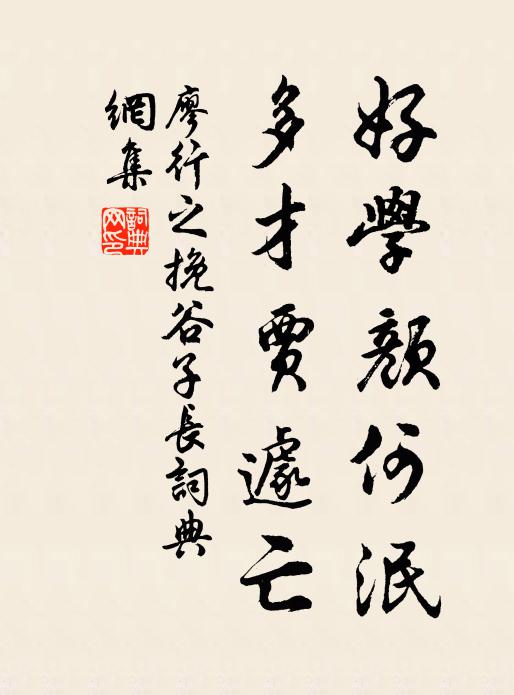 好學顏何泯
多才賈遽亡
廖行之挽谷子長詞典
網集
詞典網印